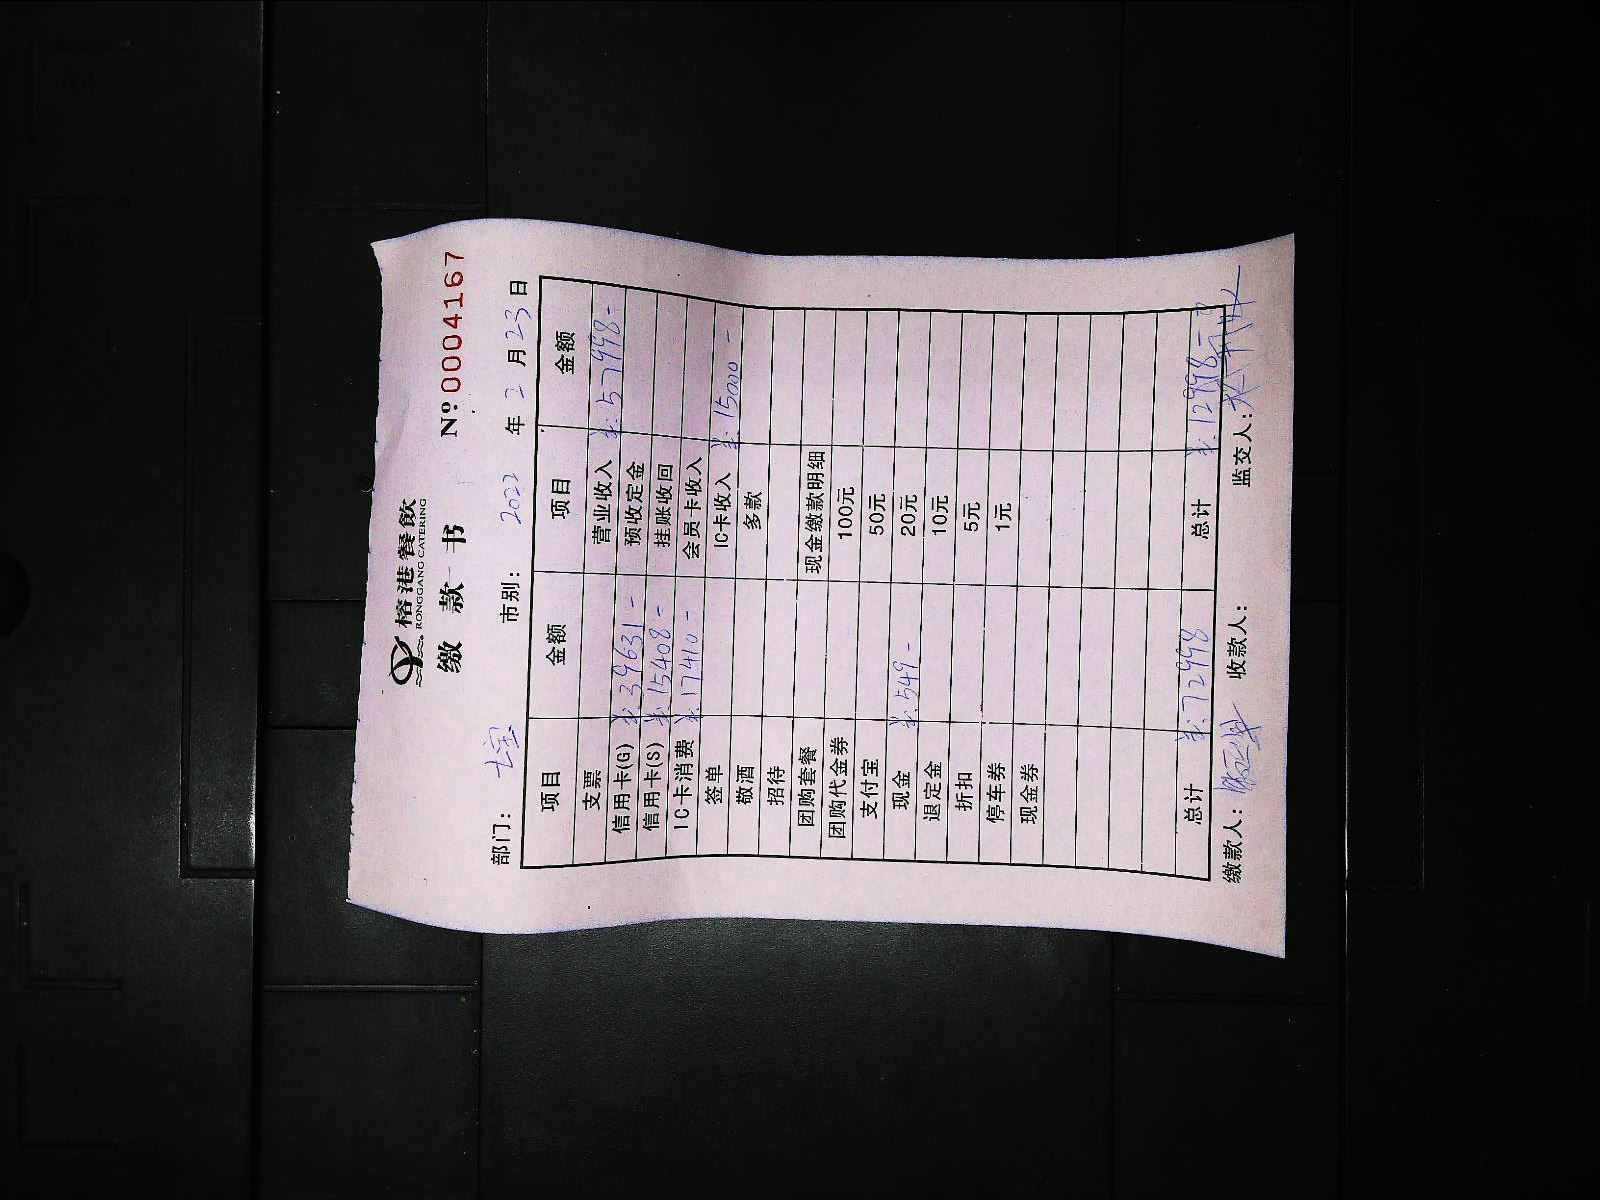 榕港餐飲
RONGGANG CATERING
缴款书 Nº 0004167
部门： 七宝 市别： 2022 年 2 月 23 日
项目 金额 项目 金额
支票 营业收入 ¥:57998-
信用卡(G) ¥:39631- 预收定金
信用卡(S) ¥:15408- 挂账收回
IC卡消费 ¥:17410- 会员卡收入
签单 IC卡收入 ¥:15000-
敬酒 多款
招待
团购套餐 现金缴款明细
团购代金券 100元
支付宝 50元
现金 ¥:549- 20元
退定金 10元
折扣 5元
停车券 1元
现金券
总计 ¥:72998 总计 ¥:72998-
缴款人： 收款人： 监交人：